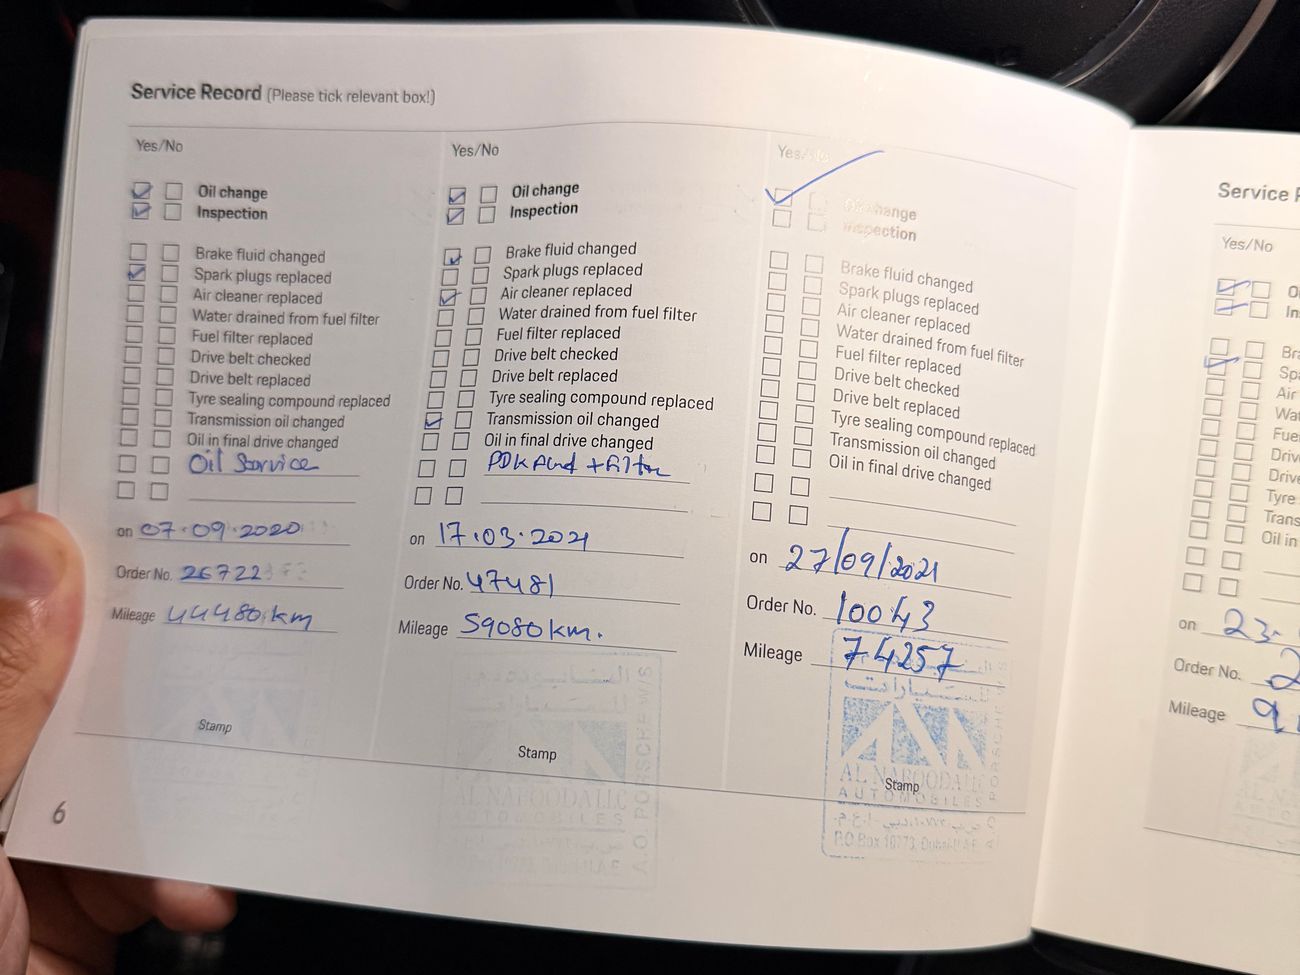 Service Record (Please tick relevant box!)
Yes/No
Oil change
Inspection
Brake fluid changed
Spark plugs replaced
Air cleaner replaced
Water drained from fuel filter
Fuel filter replaced
Drive belt checked
Drive belt replaced
Tyre sealing compound replaced
Transmission oil changed
Oil in final drive changed
Oil Service
on 07.09.2020
Order No. 26722
Mileage 44480 km
Stamp
Yes/No
Oil change
Inspection
Brake fluid changed
Spark plugs replaced
Air cleaner replaced
Water drained from fuel filter
Fuel filter replaced
Drive belt checked
Drive belt replaced
Tyre sealing compound replaced
Transmission oil changed
Oil in final drive changed
PDK And + Filter
on 17.03.2021
Order No. 47481
Mileage 59080 km.
AL NABOODA LLC
AUTOMOBILES
Stamp
Yes/No
Oil change
Inspection
Brake fluid changed
Spark plugs replaced
Air cleaner replaced
Water drained from fuel filter
Fuel filter replaced
Drive belt checked
Drive belt replaced
Tyre sealing compound replaced
Transmission oil changed
Oil in final drive changed
on 27/09/2021
Order No. 10043
Mileage 74257
للسيارات
AL NABOODA LLC
AUTOMOBILES
Stamp
P.O Box 10773, Dubai-U.A.E
6
Service
Yes/No
on 23.
Order No. 2
Mileage 9